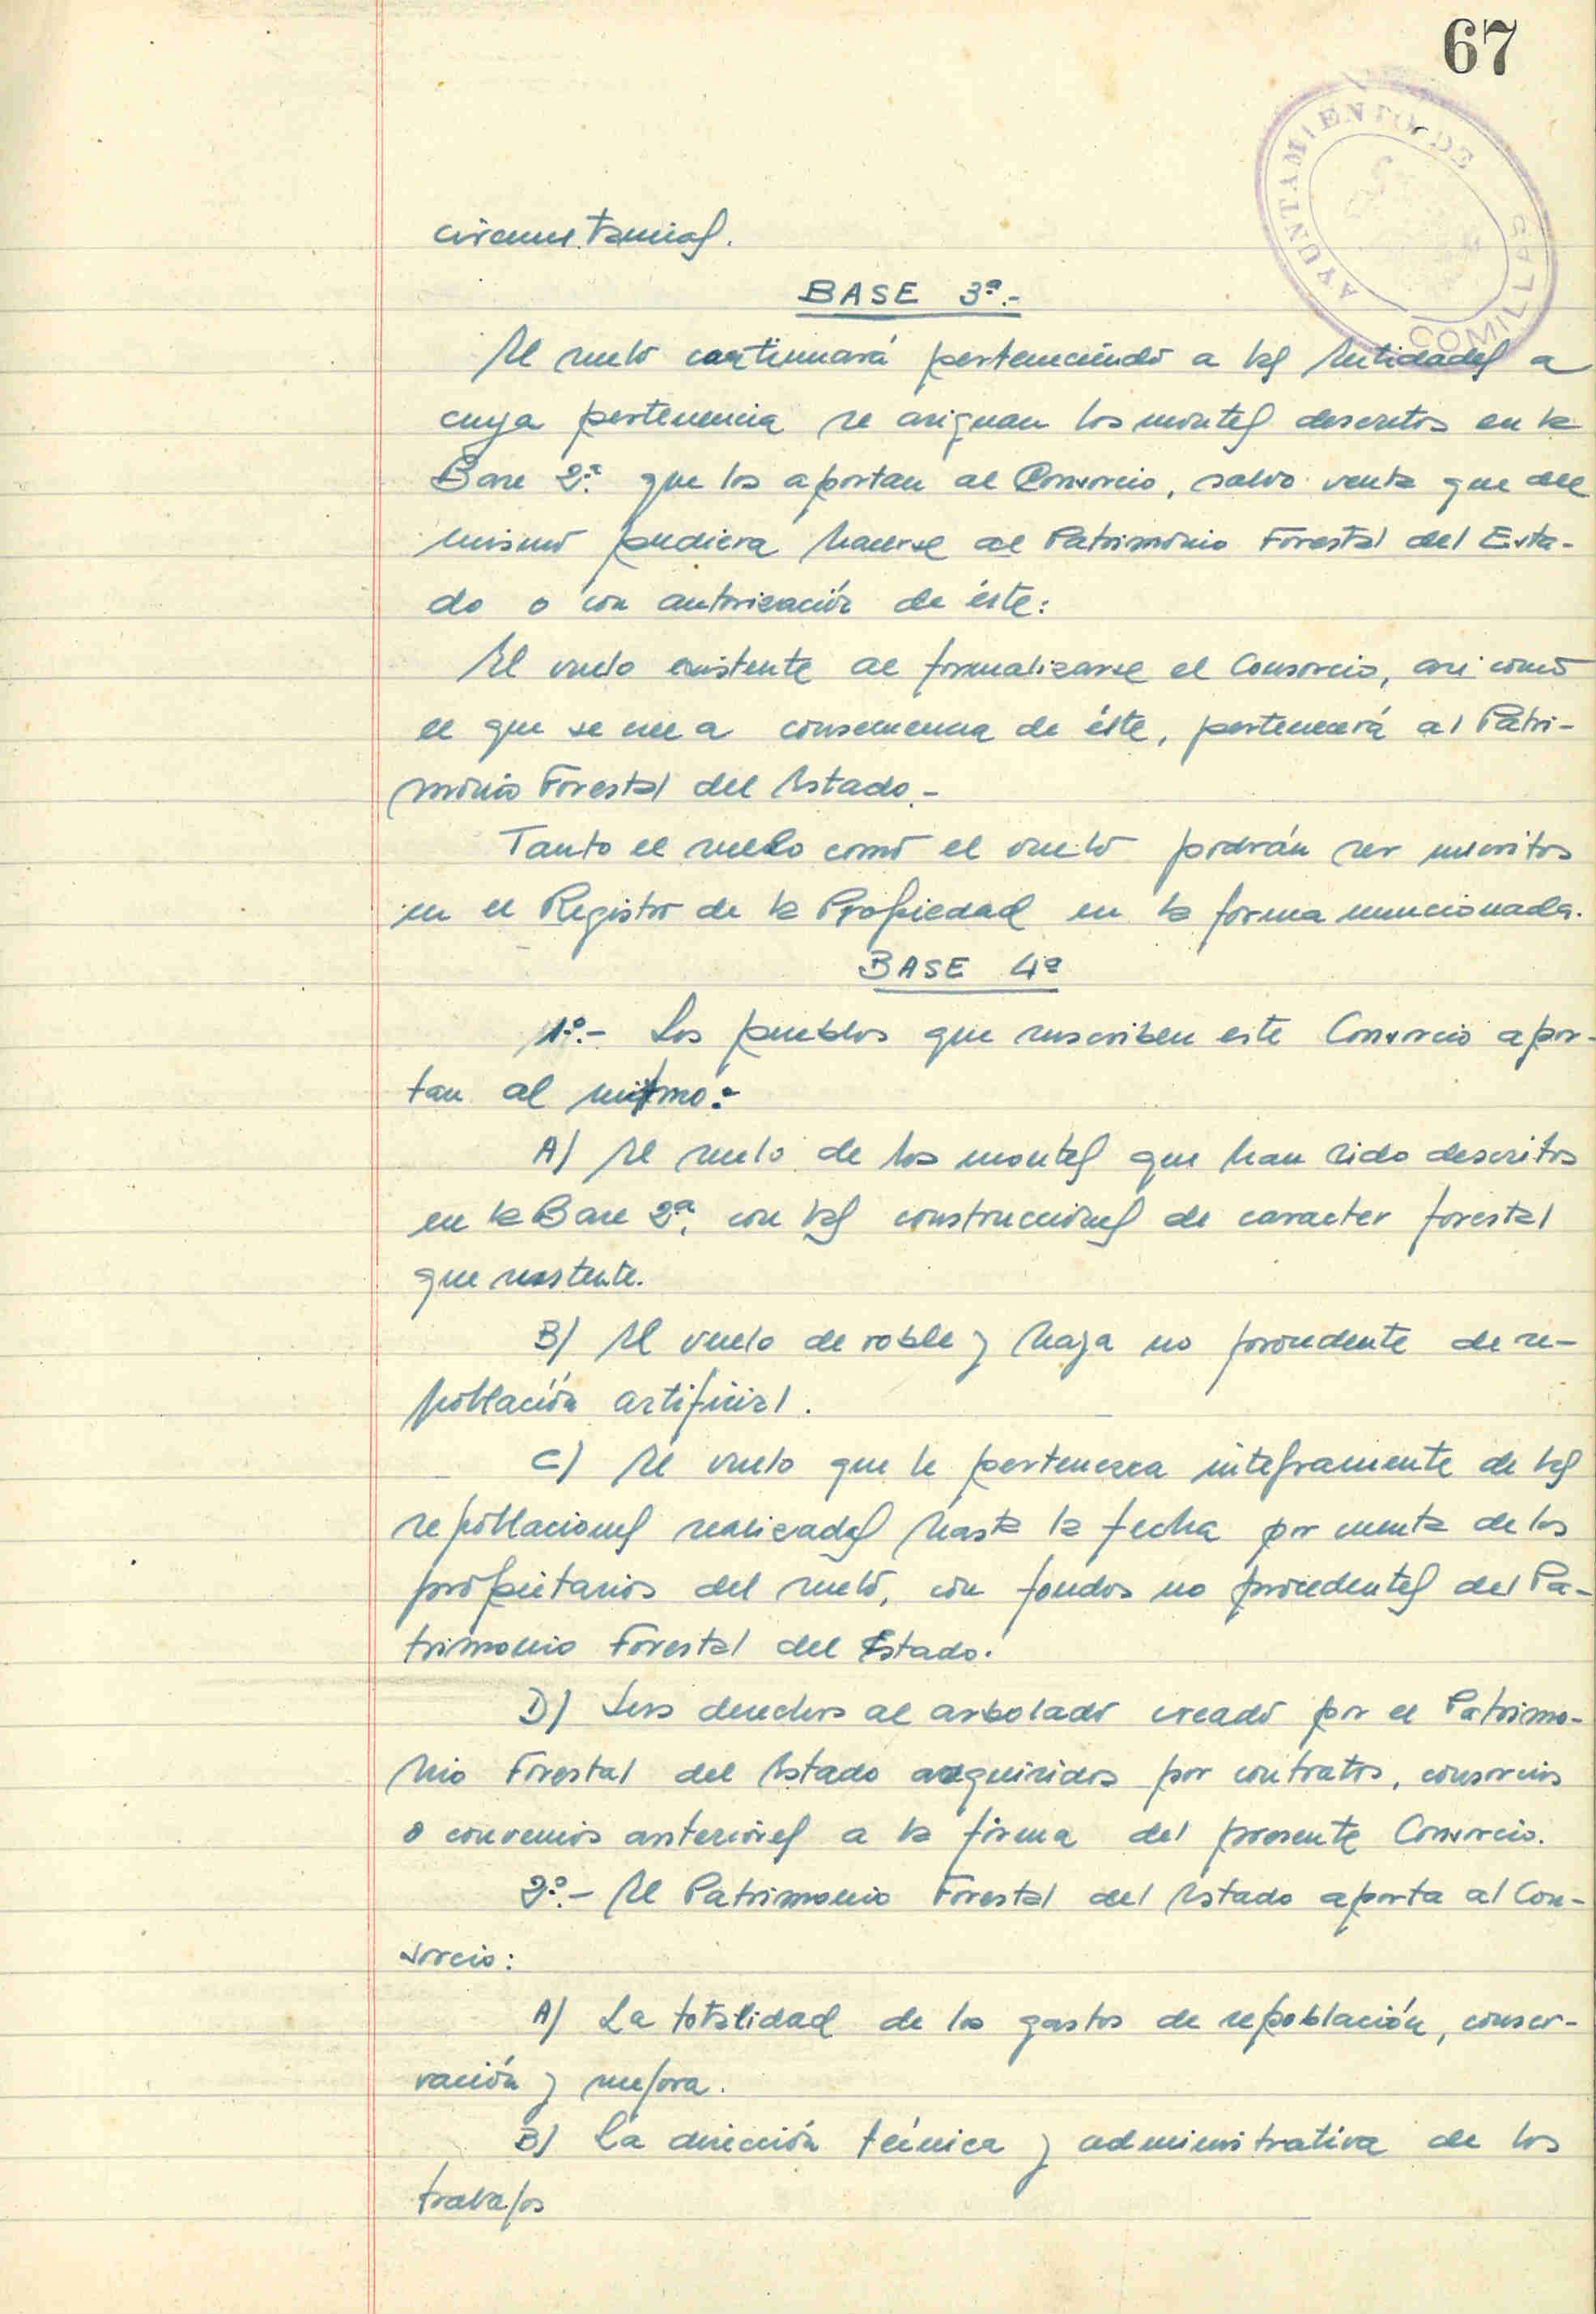 67
AYUNTAMIENTO DE
COMILLAS
circunstancias.
BASE 3ª.-
El suelo continuará perteneciendo a las Entidades a
cuya pertenencia se asignan los montes descritos en la
Base 2ª. que los aportan al Consorcio, salvo venta que del
mismo pudiera hacerse al Patrimonio Forestal del Esta-
do o con autorización de éste:
El vuelo existente al formalizarse el Consorcio, asi como
el que se cree a consecuencia de éste, pertenecerá al Patri-
monio Forestal del Estado.-
Tanto el suelo como el vuelo podrán ser inscritos
en el Registro de la Propiedad en la forma mencionada.
BASE 4ª
1º.- Los pueblos que suscriben este Consorcio apor-
tan al mismo:
A) El suelo de los montes que han sido descritos
en la Base 2ª, con las construcciones de caracter forestal
que sustente.
B) El vuelo de roble y haya no procedente de re-
población artificial.
C) El vuelo que le pertenezca integramente de las
repoblaciones realizadas hasta la fecha por cuenta de los
propietarios del suelo, con fondos no procedentes del Pa-
trimonio Forestal del Estado.
D) Sus derechos al arbolado creado por el Patrimo-
nio Forestal del Estado adquiridos por contratos, consorcios
o convenios anteriores a la firma del presente Consorcio.
2º.- El Patrimonio Forestal del Estado aporta al Con-
sorcio:
A) La totalidad de los gastos de repoblación, conser-
vación y mejora.
B) La dirección técnica y administrativa de los
trabajos